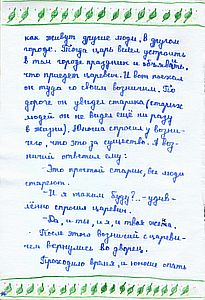 как живут другие люди, в другом
городе. Тогда царь велел устроить
в том городе праздник и объявить,
что приедет царевич. И вот поехал
он туда со своим возничим. По
дороге он увидел старика (старых
людей он не видел ещё ни разу
в жизни). Юноша спросил у возни-
чего, что это за существо. А воз-
ничий ответил ему:
- Это простой старик, все люди
стареют.
- И я таким буду?.. - удив-
лённо спросил царевич.
- Да, и ты, и я, и твоя жена.
После этого возничий с цареви-
чем вернулись во дворец.
Проходило время, и юноше опять